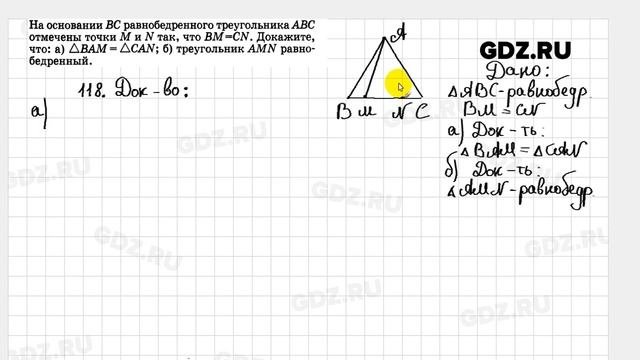 На основании BC равнобедренного треугольника ABC
отмечены точки M и N так, что BM=CN. Докажите,
что: а) △BAM = △CAN; б) треугольник AMN равно-
бедренный.
118. Док-во:
а)
A
B M N C
GDZ.RU
Дано:
△ABC-равнобедр.
BM = CN
а) Док-ть:
△BAM = △CAN
б) Док-ть:
△AMN-равнобедр.
GDZ.RU
GDZ.RU
GDZ.RU
GDZ.RU
GDZ.RU
GDZ.RU